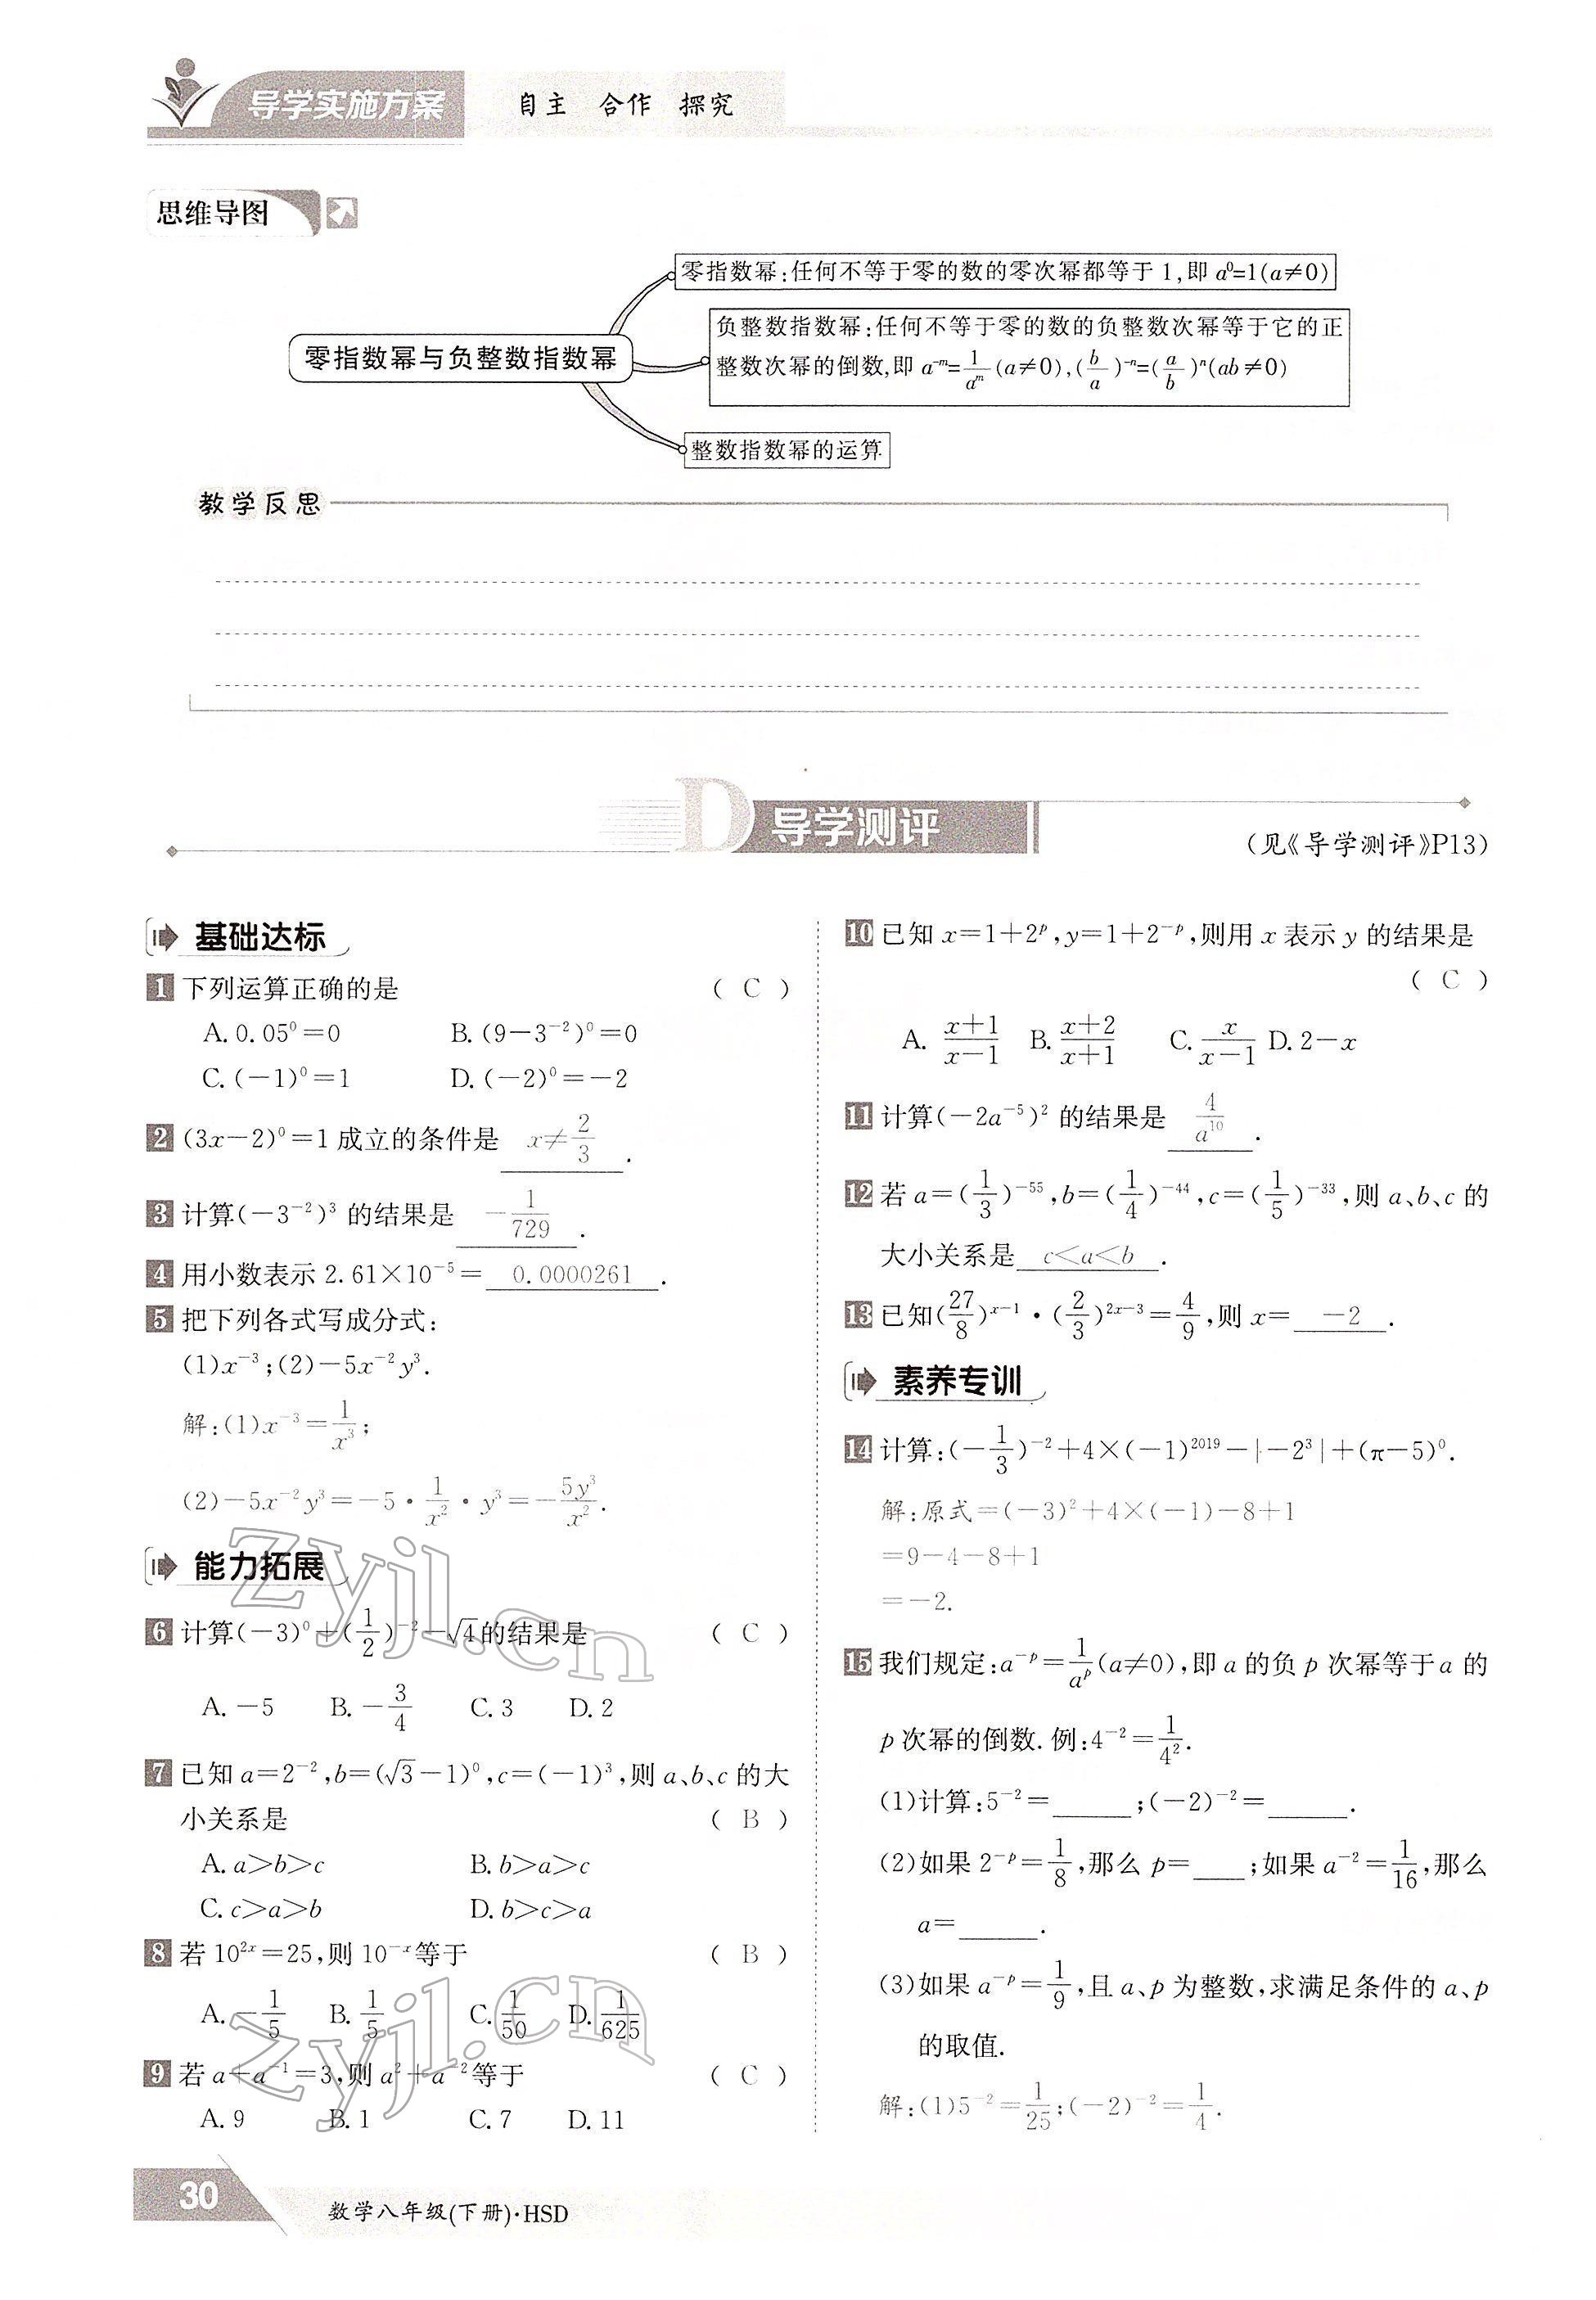 导学实施方案 自主 合作 探究
思维导图
零指数幂:任何不等于零的数的零次幂都等于1,即 a⁰=1(a≠0)
零指数幂与负整数指数幂
负整数指数幂:任何不等于零的数的负整数次幂等于它的正
整数次幂的倒数,即 a⁻ᵐ=1/aᵐ(a≠0),(b/a)⁻ⁿ=(a/b)ⁿ(ab≠0)
整数指数幂的运算
教学反思
D 导学测评
(见《导学测评》P13)
基础达标
1 下列运算正确的是 ( C )
A. 0.05⁰=0 B. (9-3⁻²)⁰=0
C. (-1)⁰=1 D. (-2)⁰=-2
2 (3x-2)⁰=1成立的条件是 x≠2/3 .
3 计算(-3⁻²)³的结果是 -1/729 .
4 用小数表示2.61×10⁻⁵= 0.0000261 .
5 把下列各式写成分式:
(1)x⁻³;(2)-5x⁻²y³.
解:(1)x⁻³=1/x³;
(2)-5x⁻²y³=-5·1/x²·y³=-5y³/x².
能力拓展
6 计算(-3)⁰+(1/2)⁻²-√4的结果是 ( C )
A. -5 B. -3/4 C. 3 D. 2
7 已知a=2⁻²,b=(√3-1)⁰,c=(-1)³,则a、b、c的大
小关系是 ( B )
A. a>b>c B. b>a>c
C. c>a>b D. b>c>a
8 若10²ˣ=25,则10⁻ˣ等于 ( B )
A. -1/5 B. 1/5 C. 1/50 D. 1/625
9 若a+a⁻¹=3,则a²+a⁻²等于 ( C )
A. 9 B. 1 C. 7 D. 11
10 已知x=1+2ᵖ,y=1+2⁻ᵖ,则用x表示y的结果是
( C )
A. (x+1)/(x-1) B. (x+2)/(x+1) C. x/(x-1) D. 2-x
11 计算(-2a⁻⁵)²的结果是 4/a¹⁰ .
12 若a=(1/3)⁻⁵⁵,b=(1/4)⁻⁴⁴,c=(1/5)⁻³³,则a、b、c的
大小关系是 c<a<b .
13 已知(27/8)ˣ⁻¹·(2/3)²ˣ⁻³=4/9,则x= -2 .
素养专训
14 计算:(-1/3)⁻²+4×(-1)²⁰¹⁹-|-2³|+(π-5)⁰.
解:原式=(-3)²+4×(-1)-8+1
=9-4-8+1
=-2.
15 我们规定:a⁻ᵖ=1/aᵖ(a≠0),即a的负p次幂等于a的
p次幂的倒数.例:4⁻²=1/4².
(1)计算:5⁻²=____;(-2)⁻²=____.
(2)如果2⁻ᵖ=1/8,那么p=___;如果a⁻²=1/16,那么
a=____.
(3)如果a⁻ᵖ=1/9,且a、p为整数,求满足条件的a、p
的取值.
解:(1)5⁻²=1/25;(-2)⁻²=1/4.
30 数学八年级(下册)·HSD
zyjl.cn
zyjl.cn